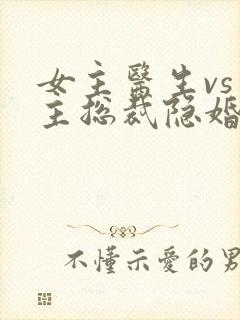 女主醫生vs
主总裁隐婚
不懂示愛的男